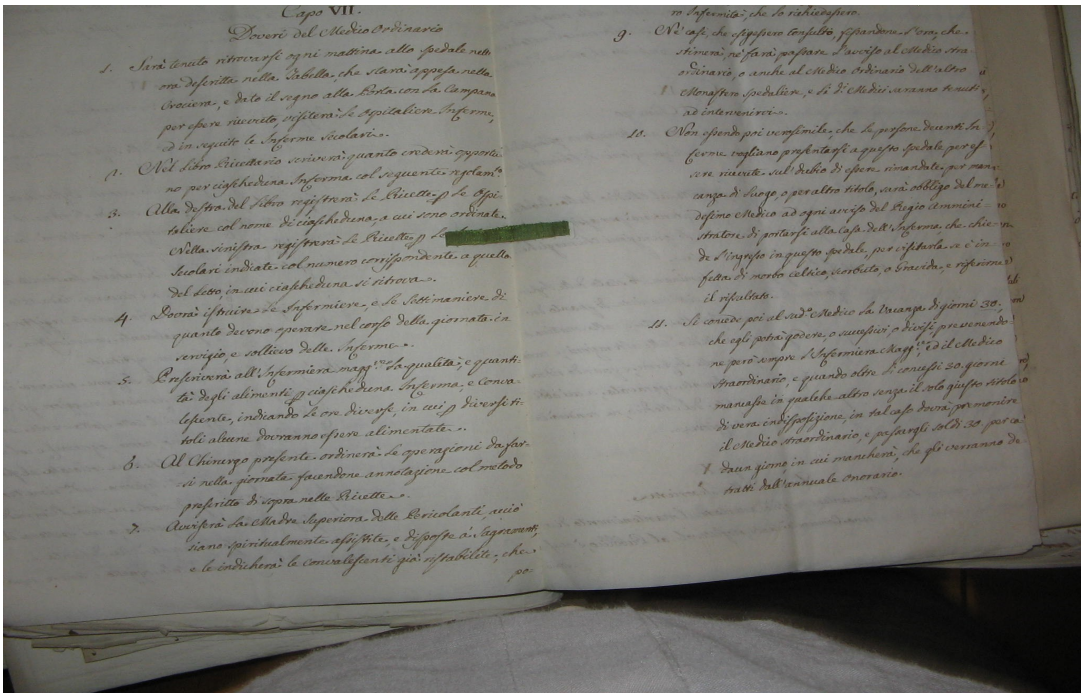 Capo VII.
Doveri del Medico Ordinario
1. Sarà tenuto ritrovarsi ogni mattina allo Spedale nell'
ora descritta nella Tabella, che starà appesa nella
Crociera, e dato il segno alla Porta con la Campana
per essere ricevuto, visiterà le Ospitaliere Inferme,
ed in seguito le Inferme Secolari.
2. Nel Libro Ricettario scriverà quanto crederà opportu
no per ciascheduna Inferma col seguente regolam.to
3. Alla destra del Libro registrerà le Ricette p le Ospi
taliere col nome di ciascheduna, a cui sono ordinate.
Nella sinistra registrerà le Ricette p le
Secolari indicate col numero corrispondente a quello
del Letto, in cui ciascheduna si ritrova.
4. Dovrà istruire le Infermiere, e le Settimaniere di
quanto devono operare nel corso della giornata in
servigio, e sollievo delle Inferme.
5. Prescriverà all'Infermiera magg.re la qualità, e quanti
tà degli alimenti p ciascheduna Inferma, e conva
lescente, indicando le ore diverse, in cui p diversi ti
toli alcune dovranno essere alimentate.
6. Al Chirurgo presente ordinerà le operazioni da far
si nella giornata facendone annotazione col metodo
prescritto di sopra nelle Ricette.
7. Avviserà la Madre Superiora delle Pericolanti, acciò
siano spiritualmente assistite, e disposte a' Sagramenti,
e le indicherà le convalescenti già ristabilite, che
po-
ro Infermità, che lo richiedessero.
9. Ne' casi, che esigessero consulto, fissandone l'ora, che
stimerà, ne farà passare l'avviso al Medico stra-
ordinario, o anche al Medico Ordinario dell'altro
Monastero Spedaliere, e li d.i Medici saranno tenuti
ad intervenirci.
10. Non essendo poi verosimile, che le persone decenti In
ferme vogliano presentarsi a questo Spedale per es
sere ricevute sul dubio di essere rimandate per man
canza di luogo, o per altro titolo, sarà obbligo del me
desimo Medico ad ogni avviso del Regio Ammini-
stratore di portarsi alla Casa dell'Inferma, che chie
de l'ingresso in questo Spedale, per visitarla se è in
fetta di morbo celtico, scorbuto, o Gravida, e riferirne
il risultato.
11. Si concede poi al sud.o Medico la Vacanza di giorni 30,
che egli potrà godere, o successivi, o divisi prevenendo
ne però sempre l'Infermiera Magg.re, ed il Medico
Straordinario, e quando oltre li concessi 30 giorni
mancasse in qualche altro senza il solo giusto titolo
di vera indisposizione, in tal caso dovrà premonire
il Medico straordinario, e passargli soldi 30 per ca
daun giorno, in cui mancherà, che gli verranno de
tratti dall'annuale onorario.